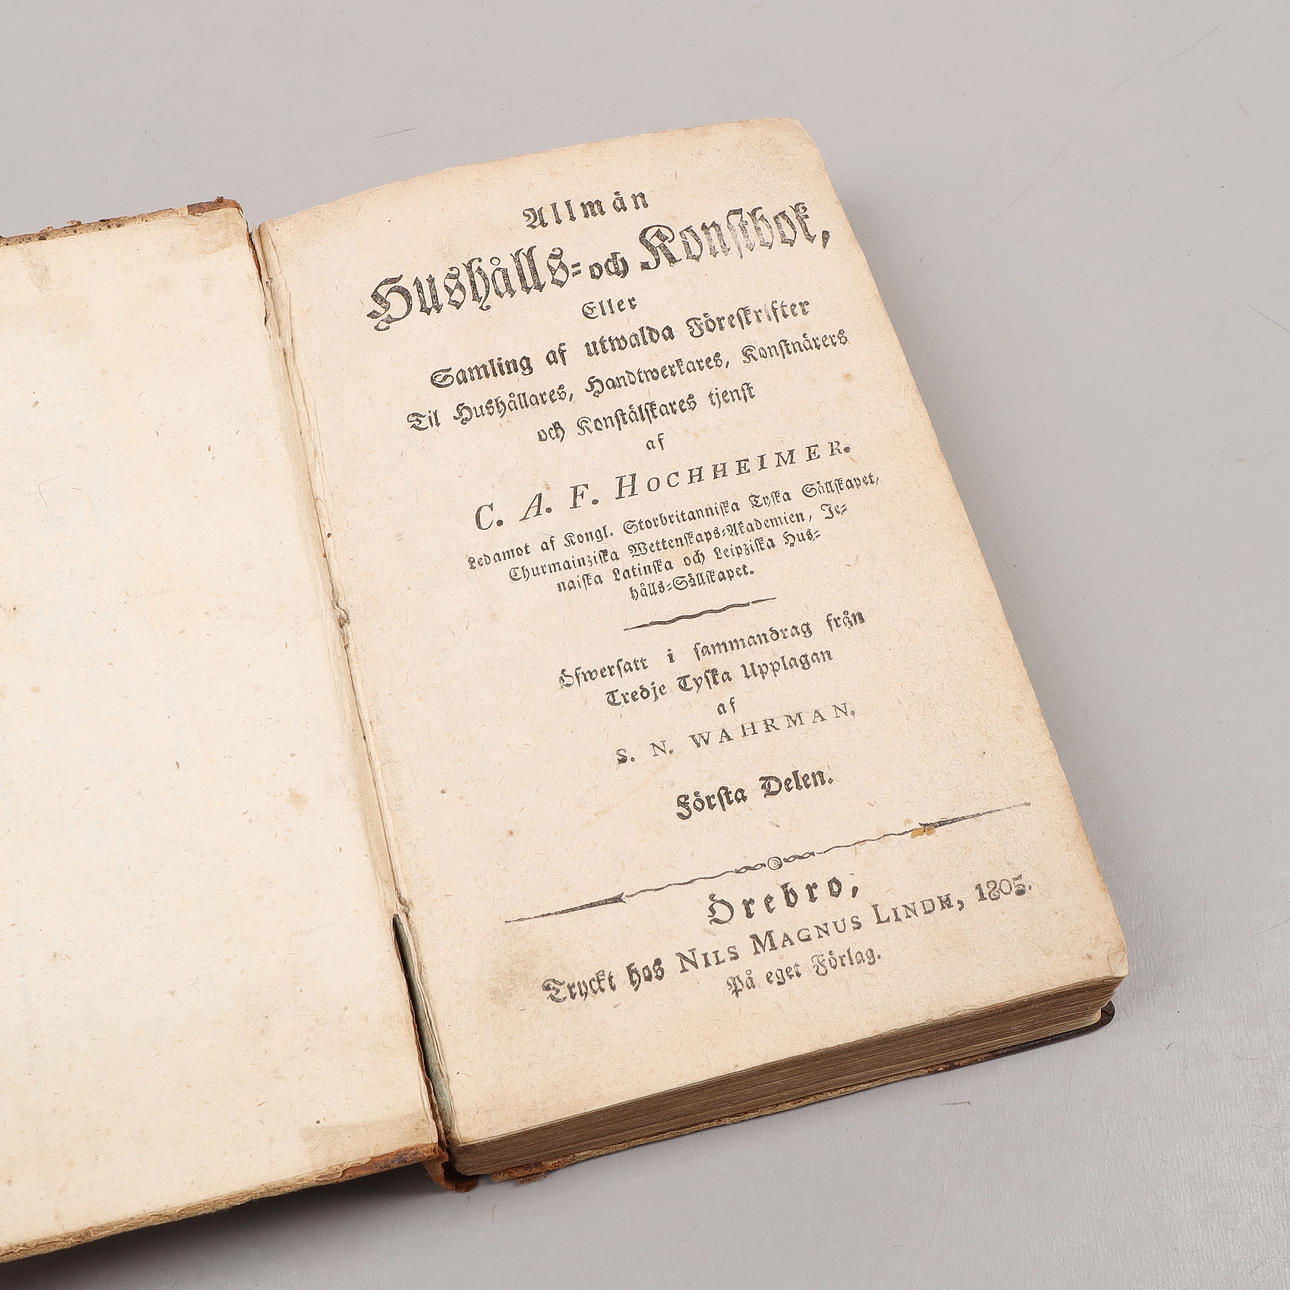 Allmän
Hushålls- och Konstbok,
Eller
Samling af utwalda Föreskrifter
Til Hushållares, Handtwerkares, Konstnärers
och Konstälskares tjenst
af
C. A. F. HOCHHEIMER.
Ledamot af Kongl. Storbritanniska Tyska Sällskapet,
Churmainziska Wettenskaps-Akademien, Je-
naiska Latinska och Leipziska Hus-
hålls-Sällskapet.
Öfwersatt i sammandrag från
Tredje Tyska Upplagan
af
S. N. WAHRMAN.
Första Delen.
Örebro,
Tryckt hos NILS MAGNUS LINDH, 1805.
På eget Förlag.